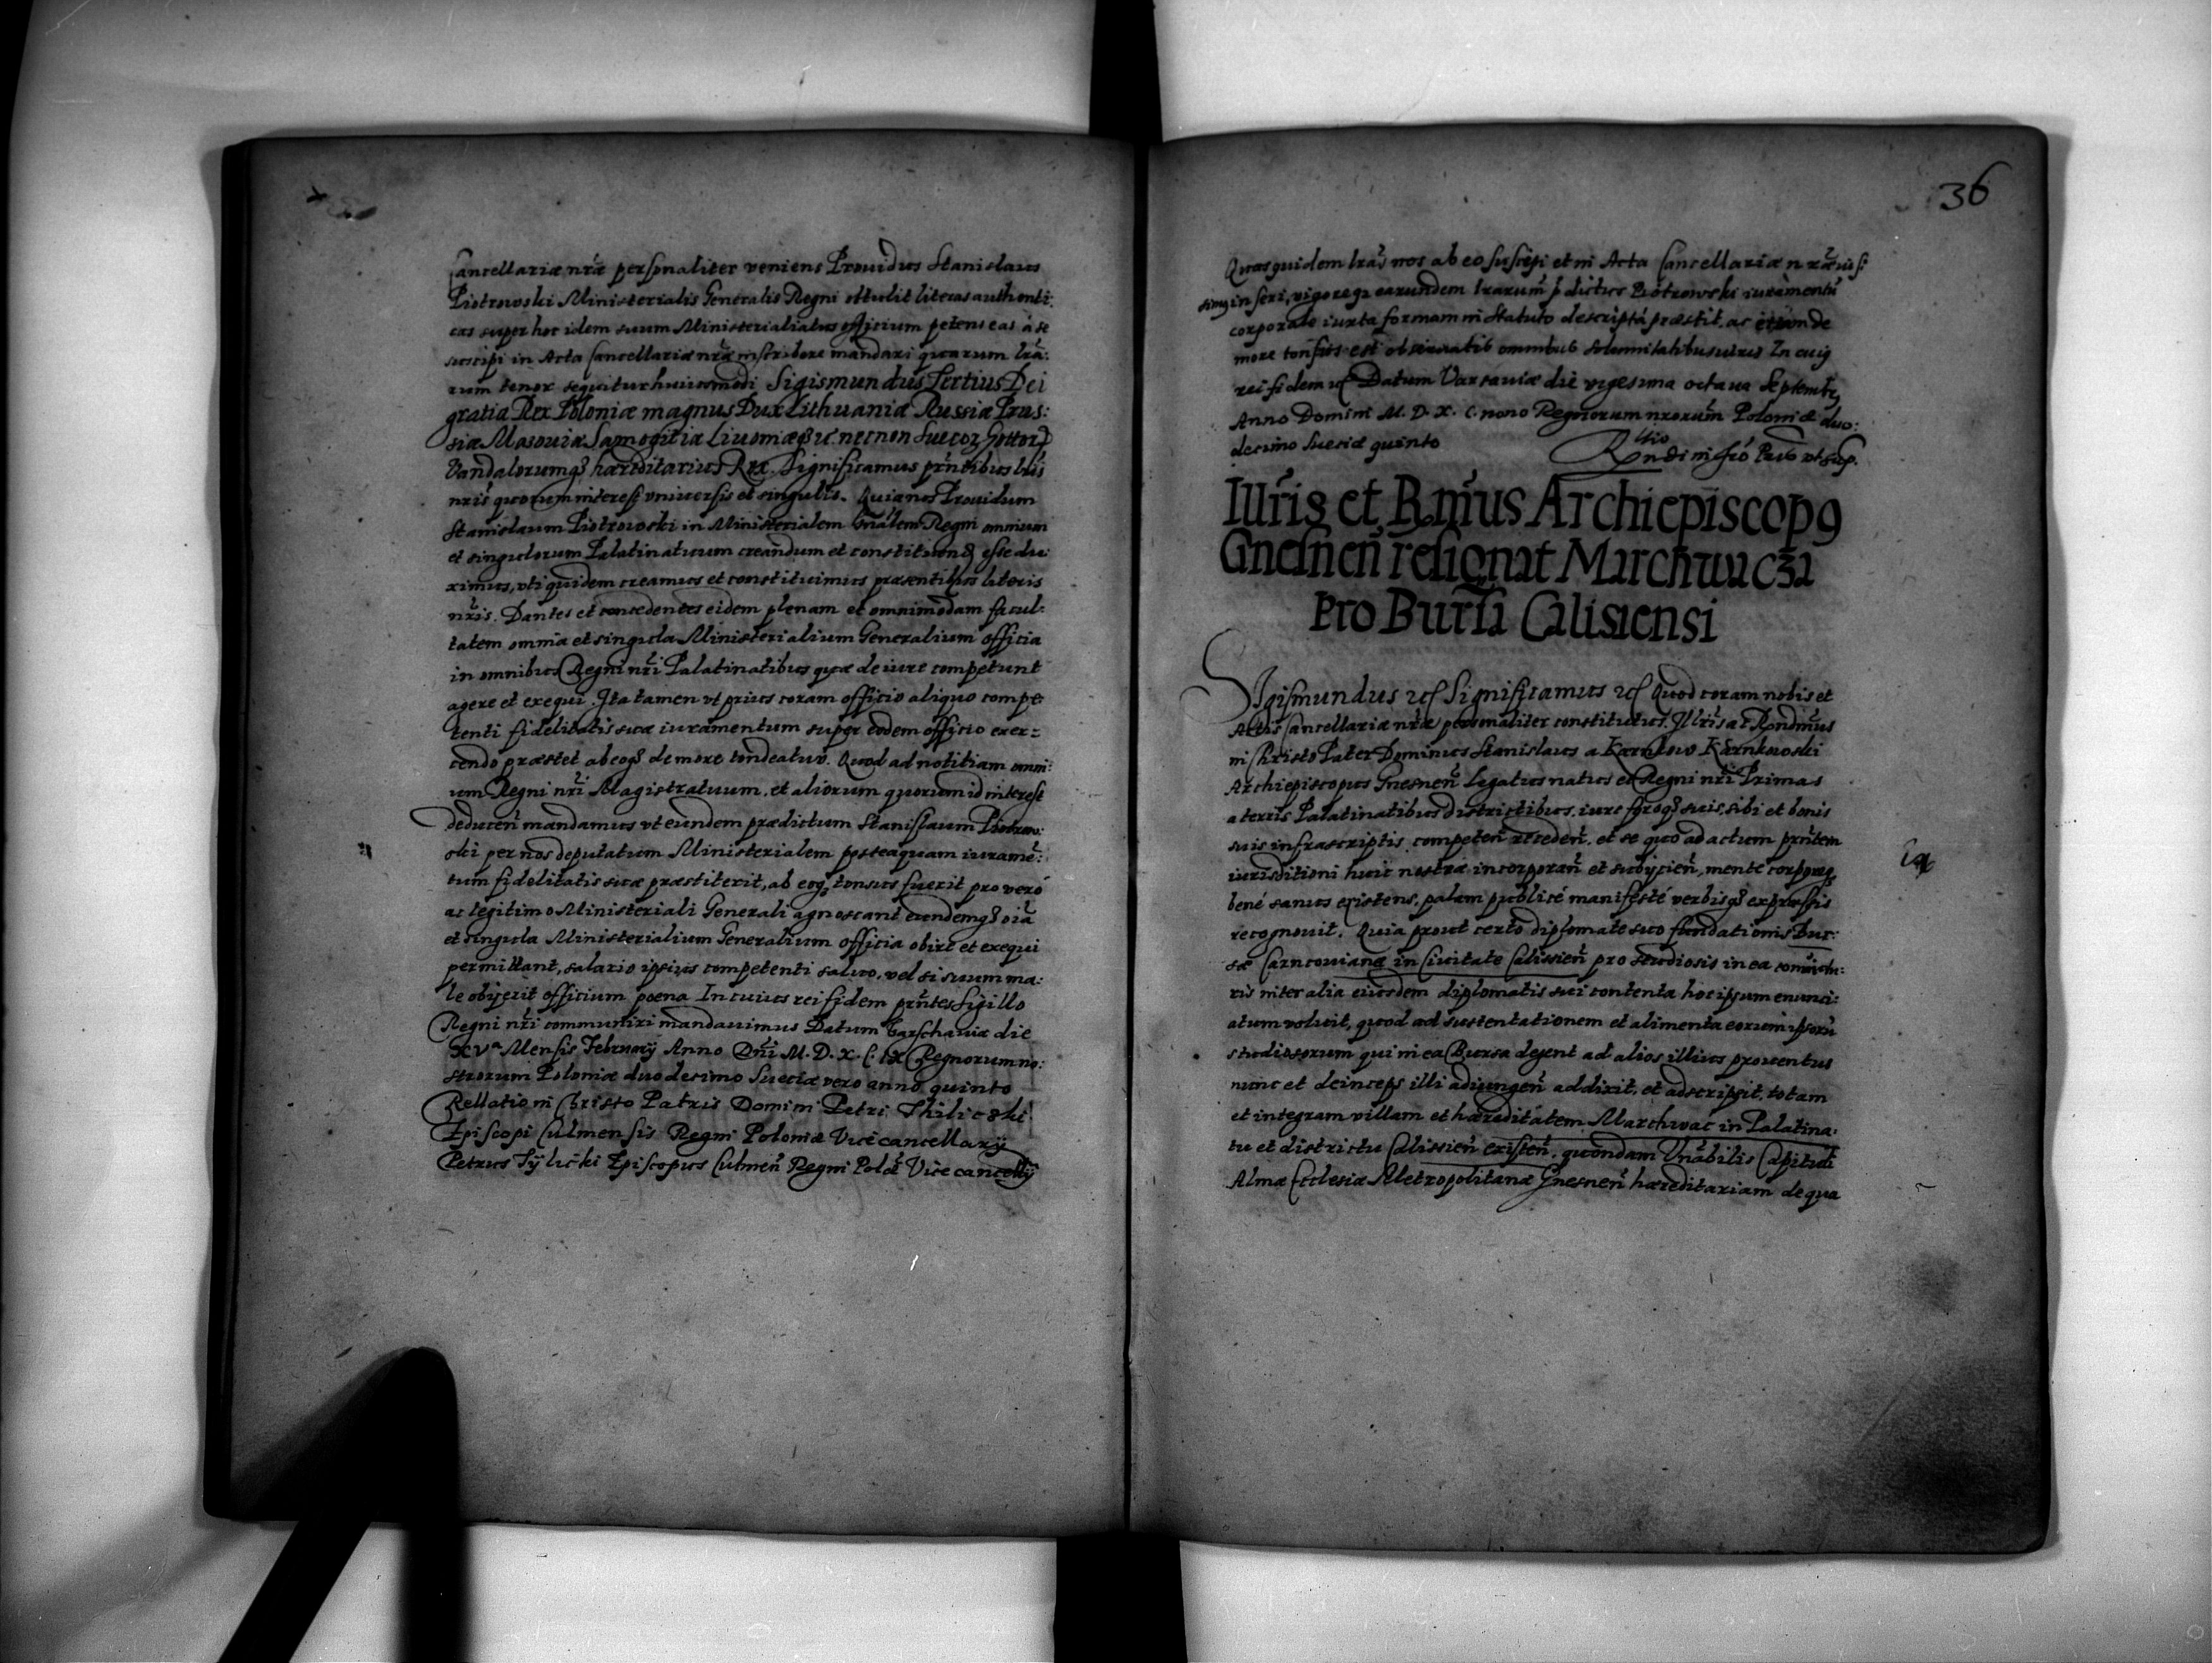 Cancellariæ nr̃æ personaliter veniens Prouidus Stanislaus
Piotrowski Ministerialis Generalis Regni obtulit literas authenti:
cas super hoc idem suum Ministerialiatus officium petens eas à se
suscipi in Acta Cancellariæ nr̃æ inscribere mandari quarum lrã:
rum tenor sequitur huiusmodi Sigismundus Tertius Dei
gratia Rex Poloniæ magnus Dux Lithuaniæ Russiæ Prus:
siæ Masouiæ Samogitiæ Liuoniæq3 &c. necnon Suecor Gottor
Vandalorumq3 hæreditarius Rex. Significamus prñtibus lrĩs
nrĩs quorum interest vniuersis et singulis. Quia nos Prouidum
Stanislaum Piotrowski in Ministerialem Gnãlem Regni omnium
et singulorum Palatinatuum creandum et constituend esse du:
ximus, vti quidem creamus et constituimus præsentibus literis
nrĩs. Dantes et concedentes eidem plenam et omnimodam facul:
tatem omnia et singula Ministerialium Generalium officia
in omnibus Regni nrĩ Palatinatibus quæ de iure competunt
agere et exequi. Ita tamen vt prius coram officio aliquo compe
tenti fidelitatis suæ iuramentum super eodem officio exer:
cendo præstet ab eoq3 de more tondeatur. Quod ad notitiam omni:
um Regni nrĩ Magistratuum, et aliorum quorum id interest
deducen̄ mandamus vt eundem prædictum Stanislaum Piotrow:
ski per nos deputatum Ministerialem posteaquam iuramē:
tum fidelitatis suæ præstiterit, ab eoq3 tonsus fuerit pro vero
ac legitimo Ministeriali Generali agnoscant eundemq3 oiã
et singula Ministerialium Generalium officia obire et exequi
permittant, salario ipsius competenti saluo, vel si suum ma:
le obijerit officium poena In cuius rei fidem prñtes sigillo
Regni nrĩ communiri mandauimus Datum Varschauiæ die
XVa Mensis February Anno Dnĩ M. D. X. C. IX Regnorum no:
strorum Poloniæ duodesimo Sueciæ vero anno quinto
Rellatio in Christo Patris Domini Petri Thilicski
Episcopi Culmensis Regni Poloniæ Vicecancellarij
Petrus Tÿlicki Episcopus Culmen̄ Regni Polæ Vicecancellÿ
36
Quas quidem lrãs nos ab eo suscipi et in Acta Cancellariæ nrãe iusi:
simus inseri, vigoreq3 earundem lrarum p̄dictus Piotrowski iuramentū
corporale iuxta formam in Statuto descriptā præstit. ac
more tonsus est obseruatis omnibus solemnitatibus In cuiq
rei fidem &c Datum Varsauiæ die vigesima octaua Septemb
Anno Domini M. D. X. C. nono Regnorum nrorum Poloniæ duo:
desimo Sueciæ quinto
Illr̃is et R̃m̃us Archiepiscop9
Gnesnen̄ resignat Marchwacz
pro Bursa Calisiensi
Sigismundus &c Significamus &c Quod coram nobis et
Actis Cancellariæ nr̃æ personaliter constitutus. Illris ac Rndmus
in Christo Pater Dominus Stanislaus a Karnkow Karnkowski
Archiepiscopus Gnesnen̄ Legatus natus et Regni nrĩ Primas
a terris Palatinatibus districtibus, iure foroq3 suis, sibi et bonis
suis infrascriptis competen̄ receden̄, et se quo ad actum prñtem
iurisditioni huic nostræ incorporan̄ et subijcien̄, mente corporeq3
bené sanus existens, palam publicé manifesté verbisq3 expressis
recognouit. Quia prout certo diplomate suo fundationis Bur:
sæ Carncouianæ in Ciuitate Calissien̄ pro studiosis in ea
ris inter alia eiusdem diplomatis sui contenta hoc ipsum enunci:
atum voluit, quod ad sustentationem et alimenta eorum ipsorū
studiosorum qui in ea Bursa degent ad alios illius prouentus
nunc et deinceps illi adiungen̄ addixit, et adscripsit, totam
et integram villam et hæreditatem Marchwac in Palatina:
tu et districtu Calissien̄ existen̄, quondam Vnãbilis Capituli
Almæ Ecclesiæ Metropolitanæ Gnesnen̄ hæreditariam de qua